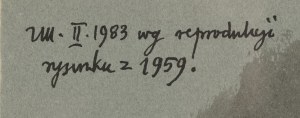 UM. II. 1983 wg reprodukcji
rysunku z 1959.